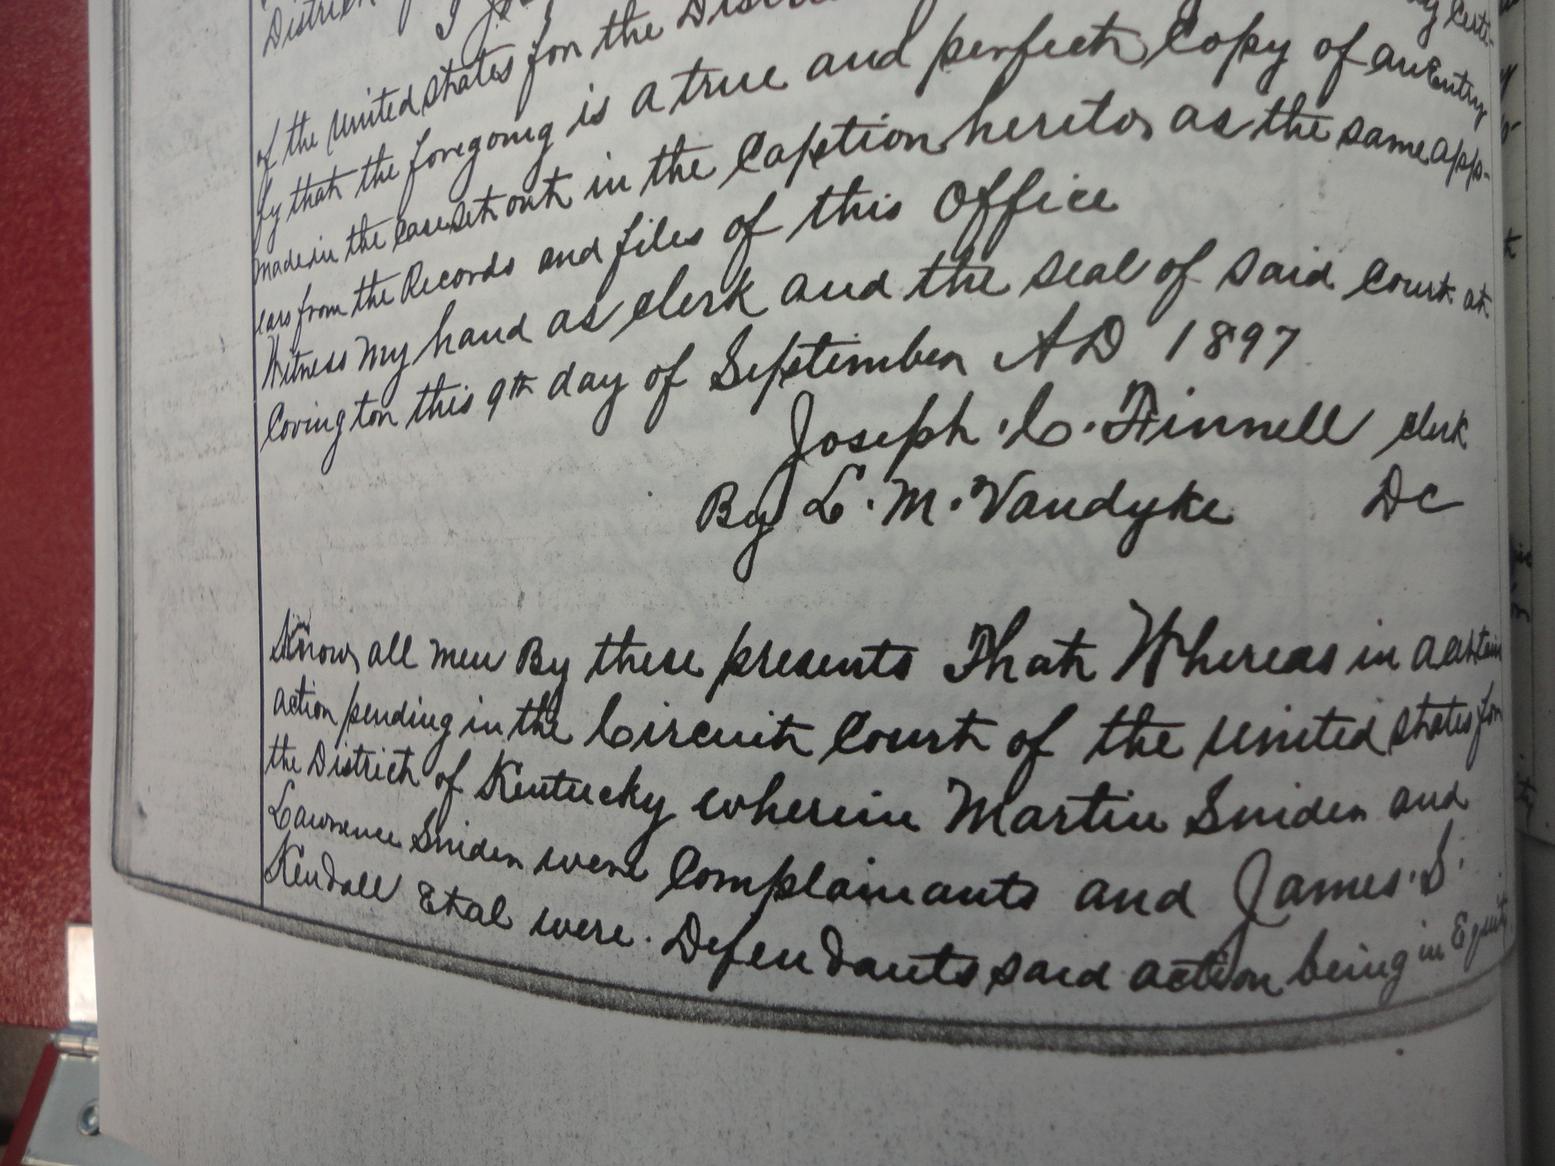 District of
I Jos
of the United States for the Distri
fy that the foregoing is a true and perfect Copy of an Entry
made in the Case set out in the Caption hereto, as the same app-
ears from the Records and files of this Office
Witness my hand as clerk and the seal of said Court at
Covington this 9th day of September AD 1897
Joseph . C . Finnell clerk
By L . M . Vandyke DC
Know, all men By these presents That Whereas in a certain
action pending in the Circuit Court of the United States for
the District of Kentucky wherein Martin Snider and
Lawrence Snider were Complainants and James . S .
Kendall Etal were . Defendants said action being in Equity